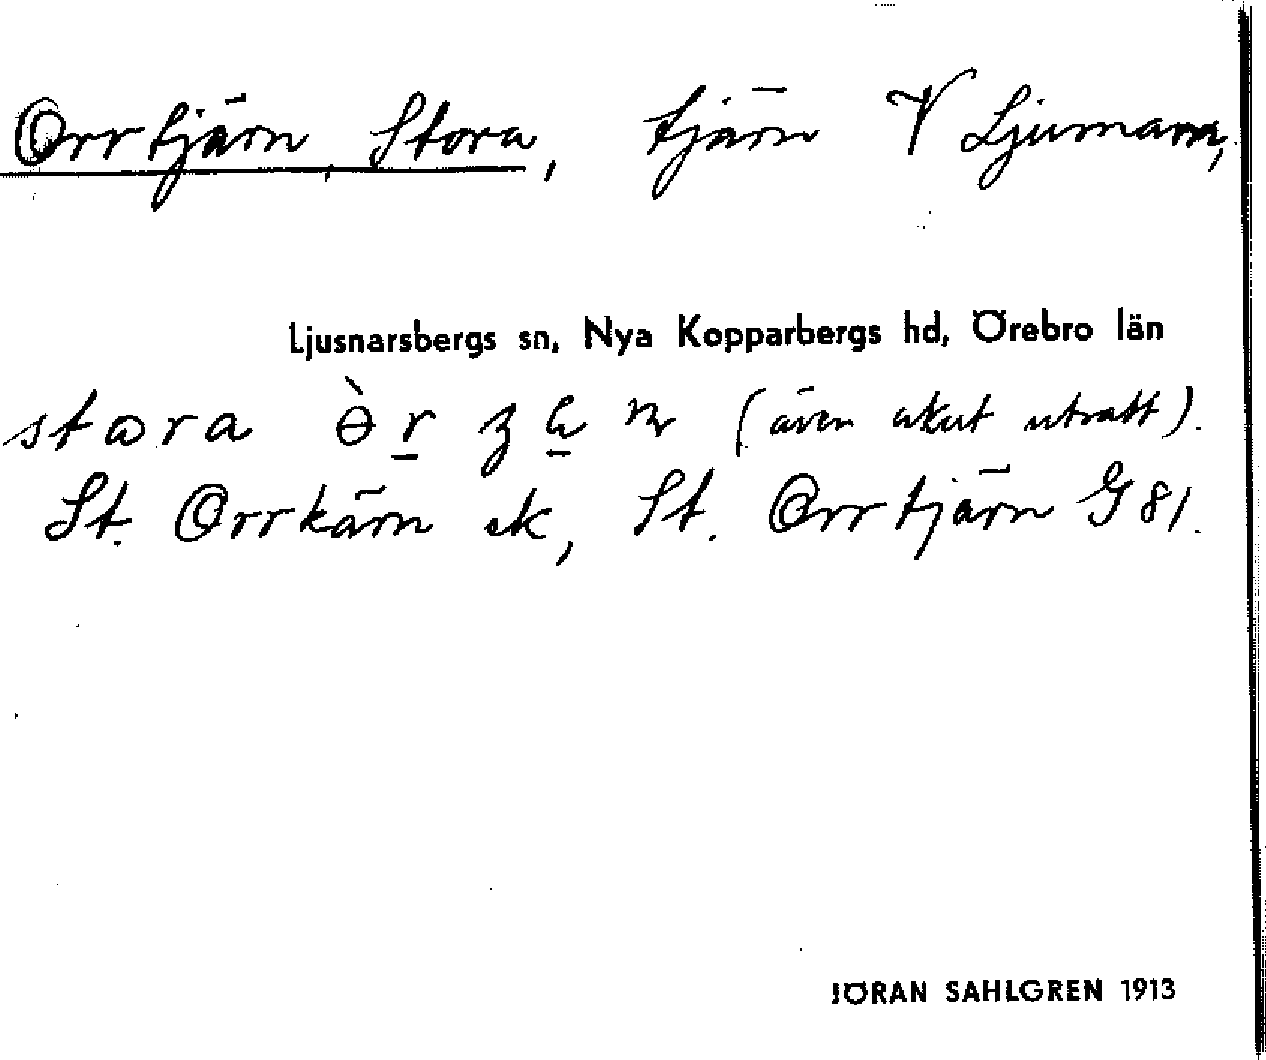 Orrtjärn, Stora, tjärn V Ljumaren,
Ljusnarsbergs sn, Nya Kopparbergs hd, Örebro län
stora (även akut uttalt).
St. Orrkärn ek, St. Orrtjärn G 81.
JÖRAN SAHLGREN 1913